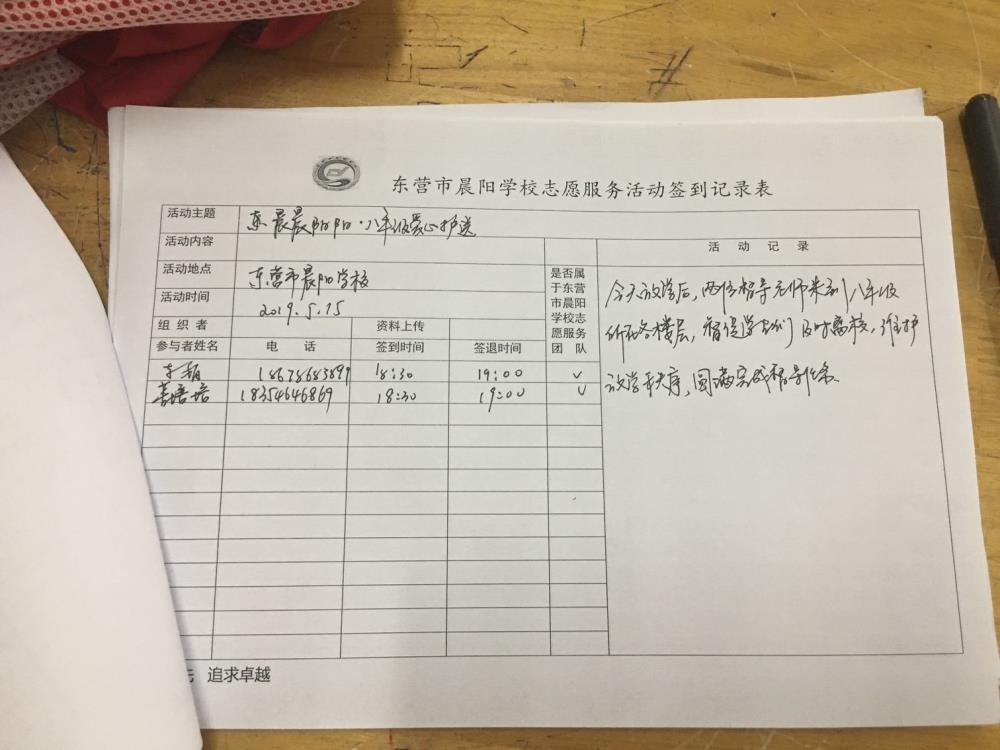 东营市晨阳学校志愿服务活动签到记录表
活动主题 东晨晨阳阳·八年级爱心护送
活动内容
活动地点 东营市晨阳学校
活动时间 2019.5.15
组织者 资料上传
参与者姓名 电话 签到时间 签退时间
是否属
于东营
市晨阳
学校志
愿服务
团队
18678683899 18:30 19:00 ✓
18354646869 18:30 19:00 ✓
活动记录
今天放学后,两位指导老师来到八年级
所在各楼层,督促学生们及时离校,维护
放学秩序,圆满完成指导任务
追求卓越